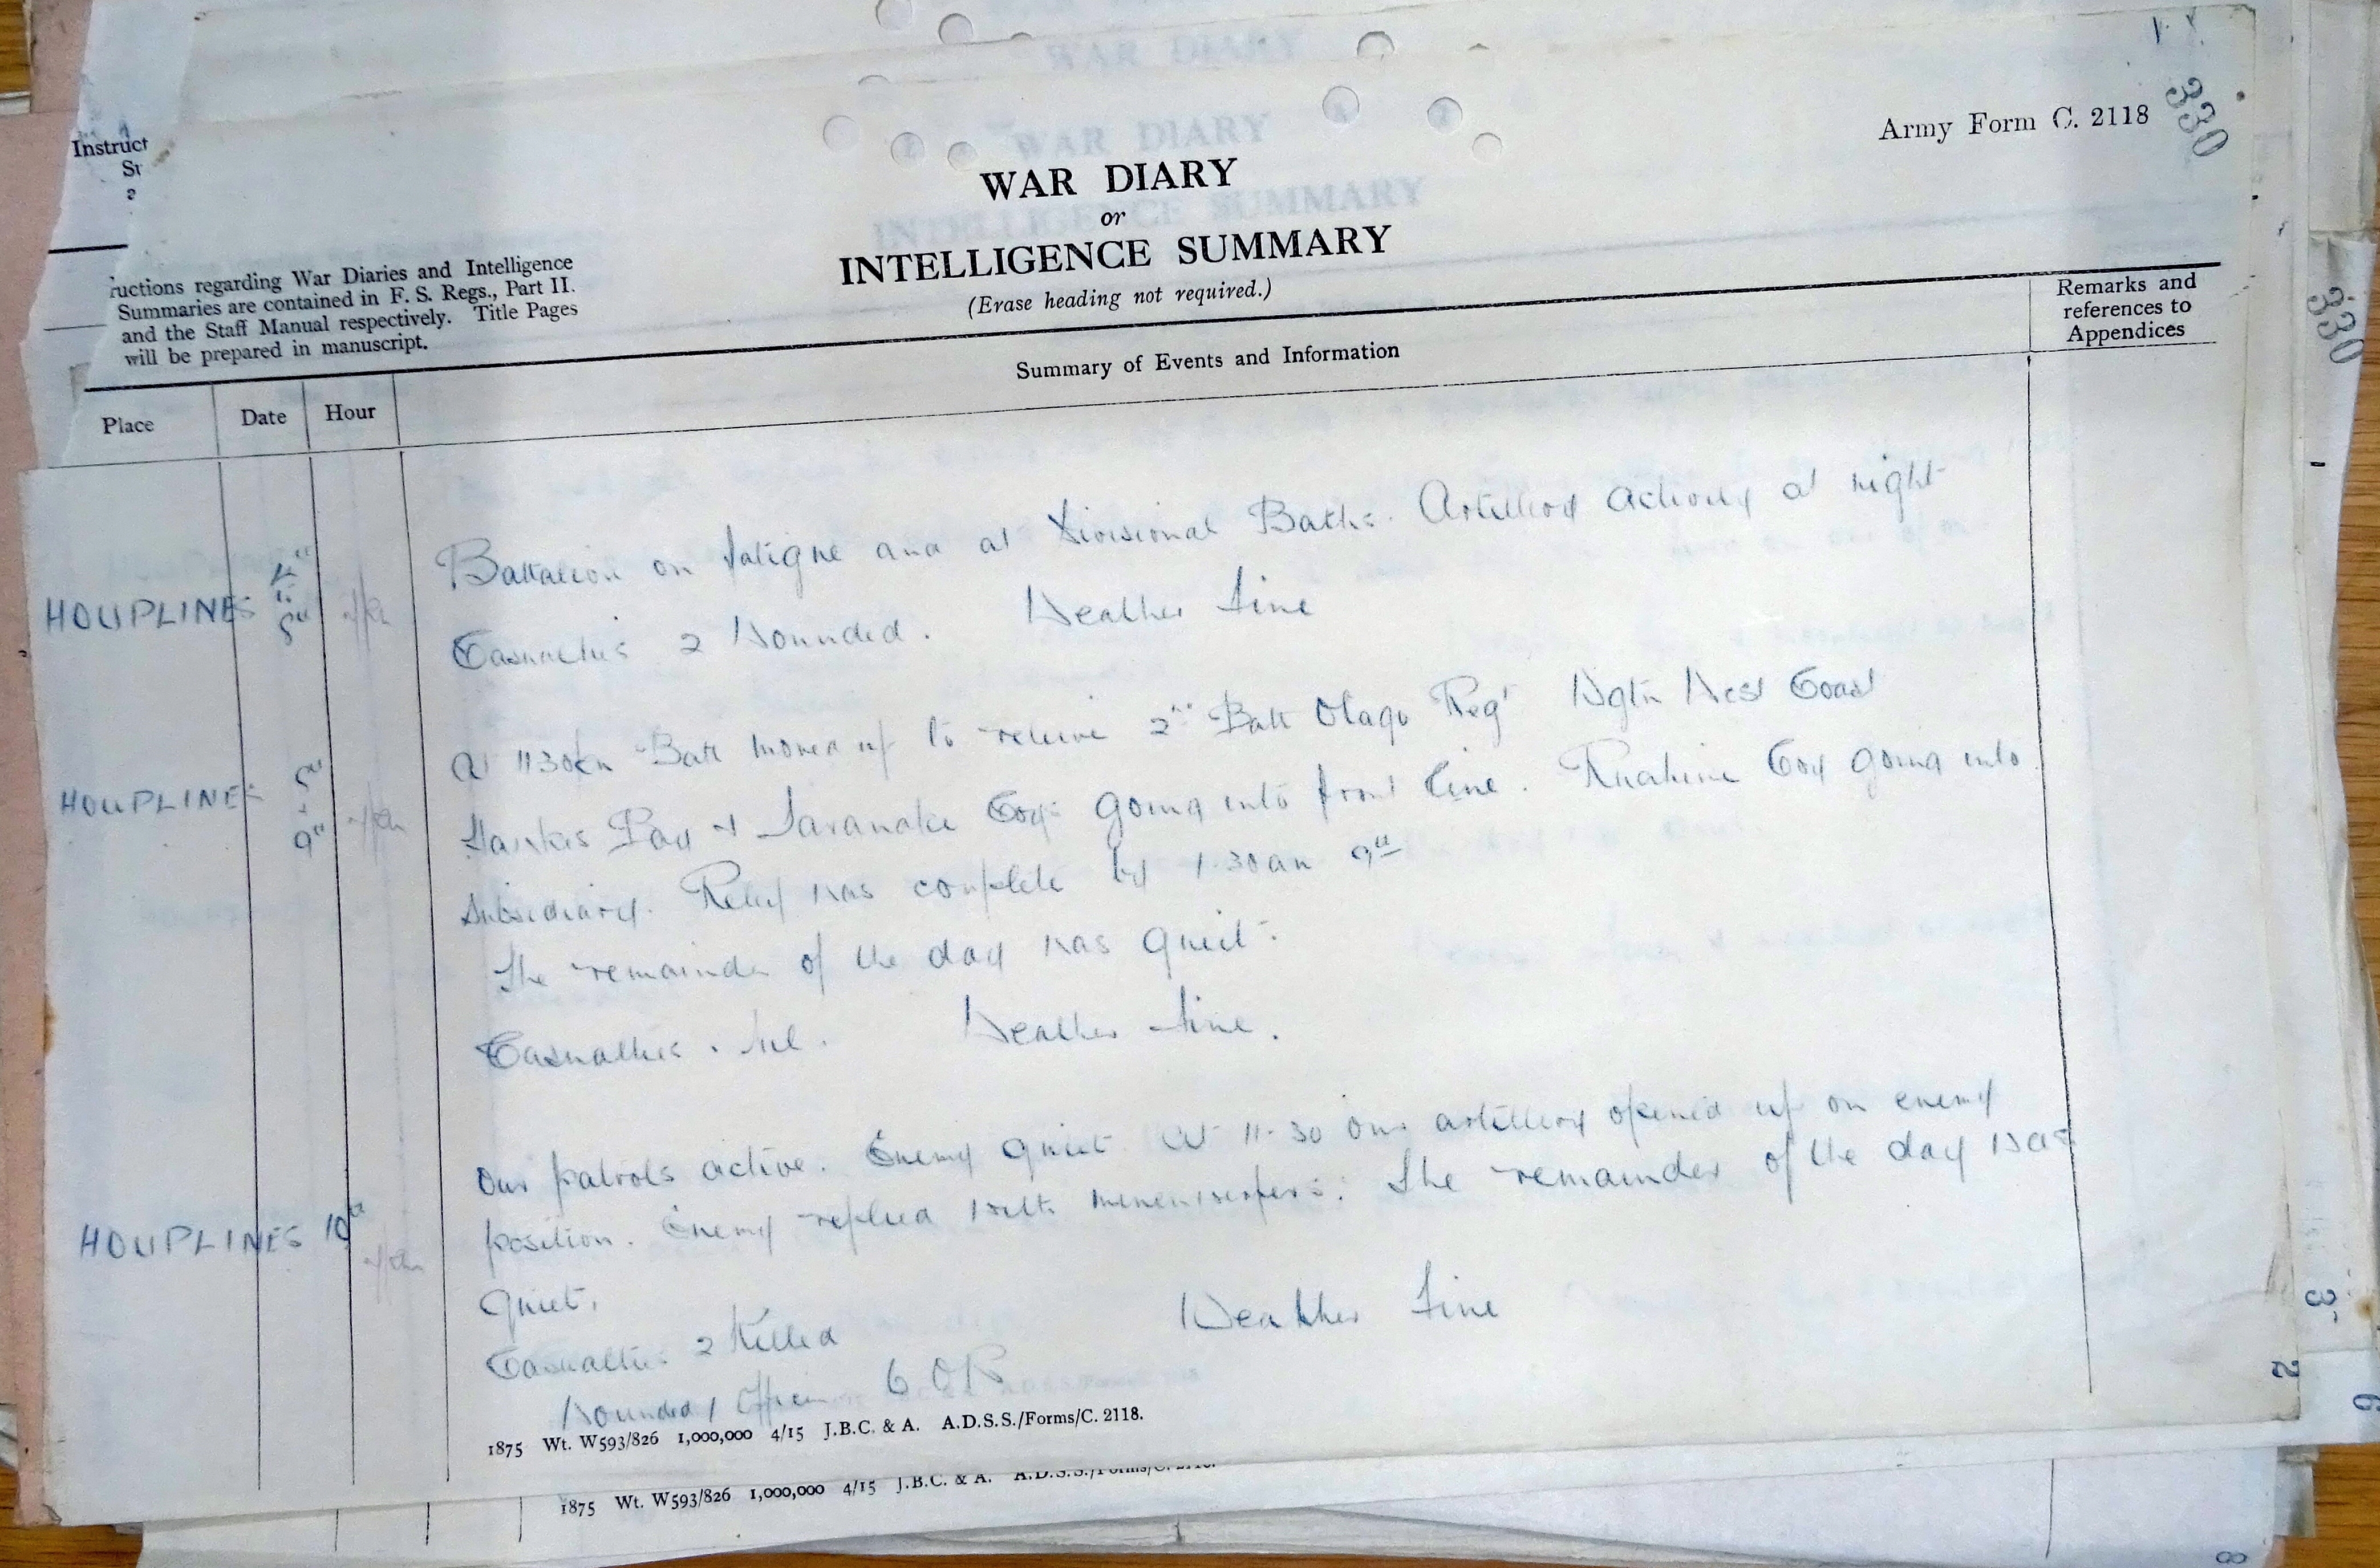 Instruct
330
Army Form C. 2118
WAR DIARY
or
INTELLIGENCE SUMMARY
(Erase heading not required.)
uctions regarding War Diaries and Intelligence
Summaries are contained in F. S. Regs., Part II.
and the Staff Manual respectively. Title Pages
will be prepared in manuscript.
Place
Date
Hour
Summary of Events and Information
Remarks and
references to
Appendices
330
HOUPLINES
Battalion on fatigue and at Divisional Baths. Artillery activity at night
Casualties 2 Wounded. Weather Fine
HOUPLINES
9th
At 1130 Batt moved up to relieve 2nd Batt Otago Regt Wgtn West Coast
Hawkes Bay & Taranaki Coys going into front line. Ruahine Coy going into
Subsidiary. Relief was complete by 1.30 am 9th
The remainder of the day was quiet.
Casualties. Nil. Weather Fine.
HOUPLINES 10th
Our patrols active. Enemy quiet. At 11-30 our artillery opened up on enemy
position. Enemy replied with minenwerfers. The remainder of the day was
Quiet.
Casualties 2 Killed Weather Fine
Wounded 1 Officer 6 OR
1875 Wt. W593/826 1,000,000 4/15 J.B.C. & A. A.D.S.S./Forms/C. 2118.
1875 Wt. W593/826 1,000,000 4/15 J.B.C. & A. A.D.S.S./Forms/C. 2118.